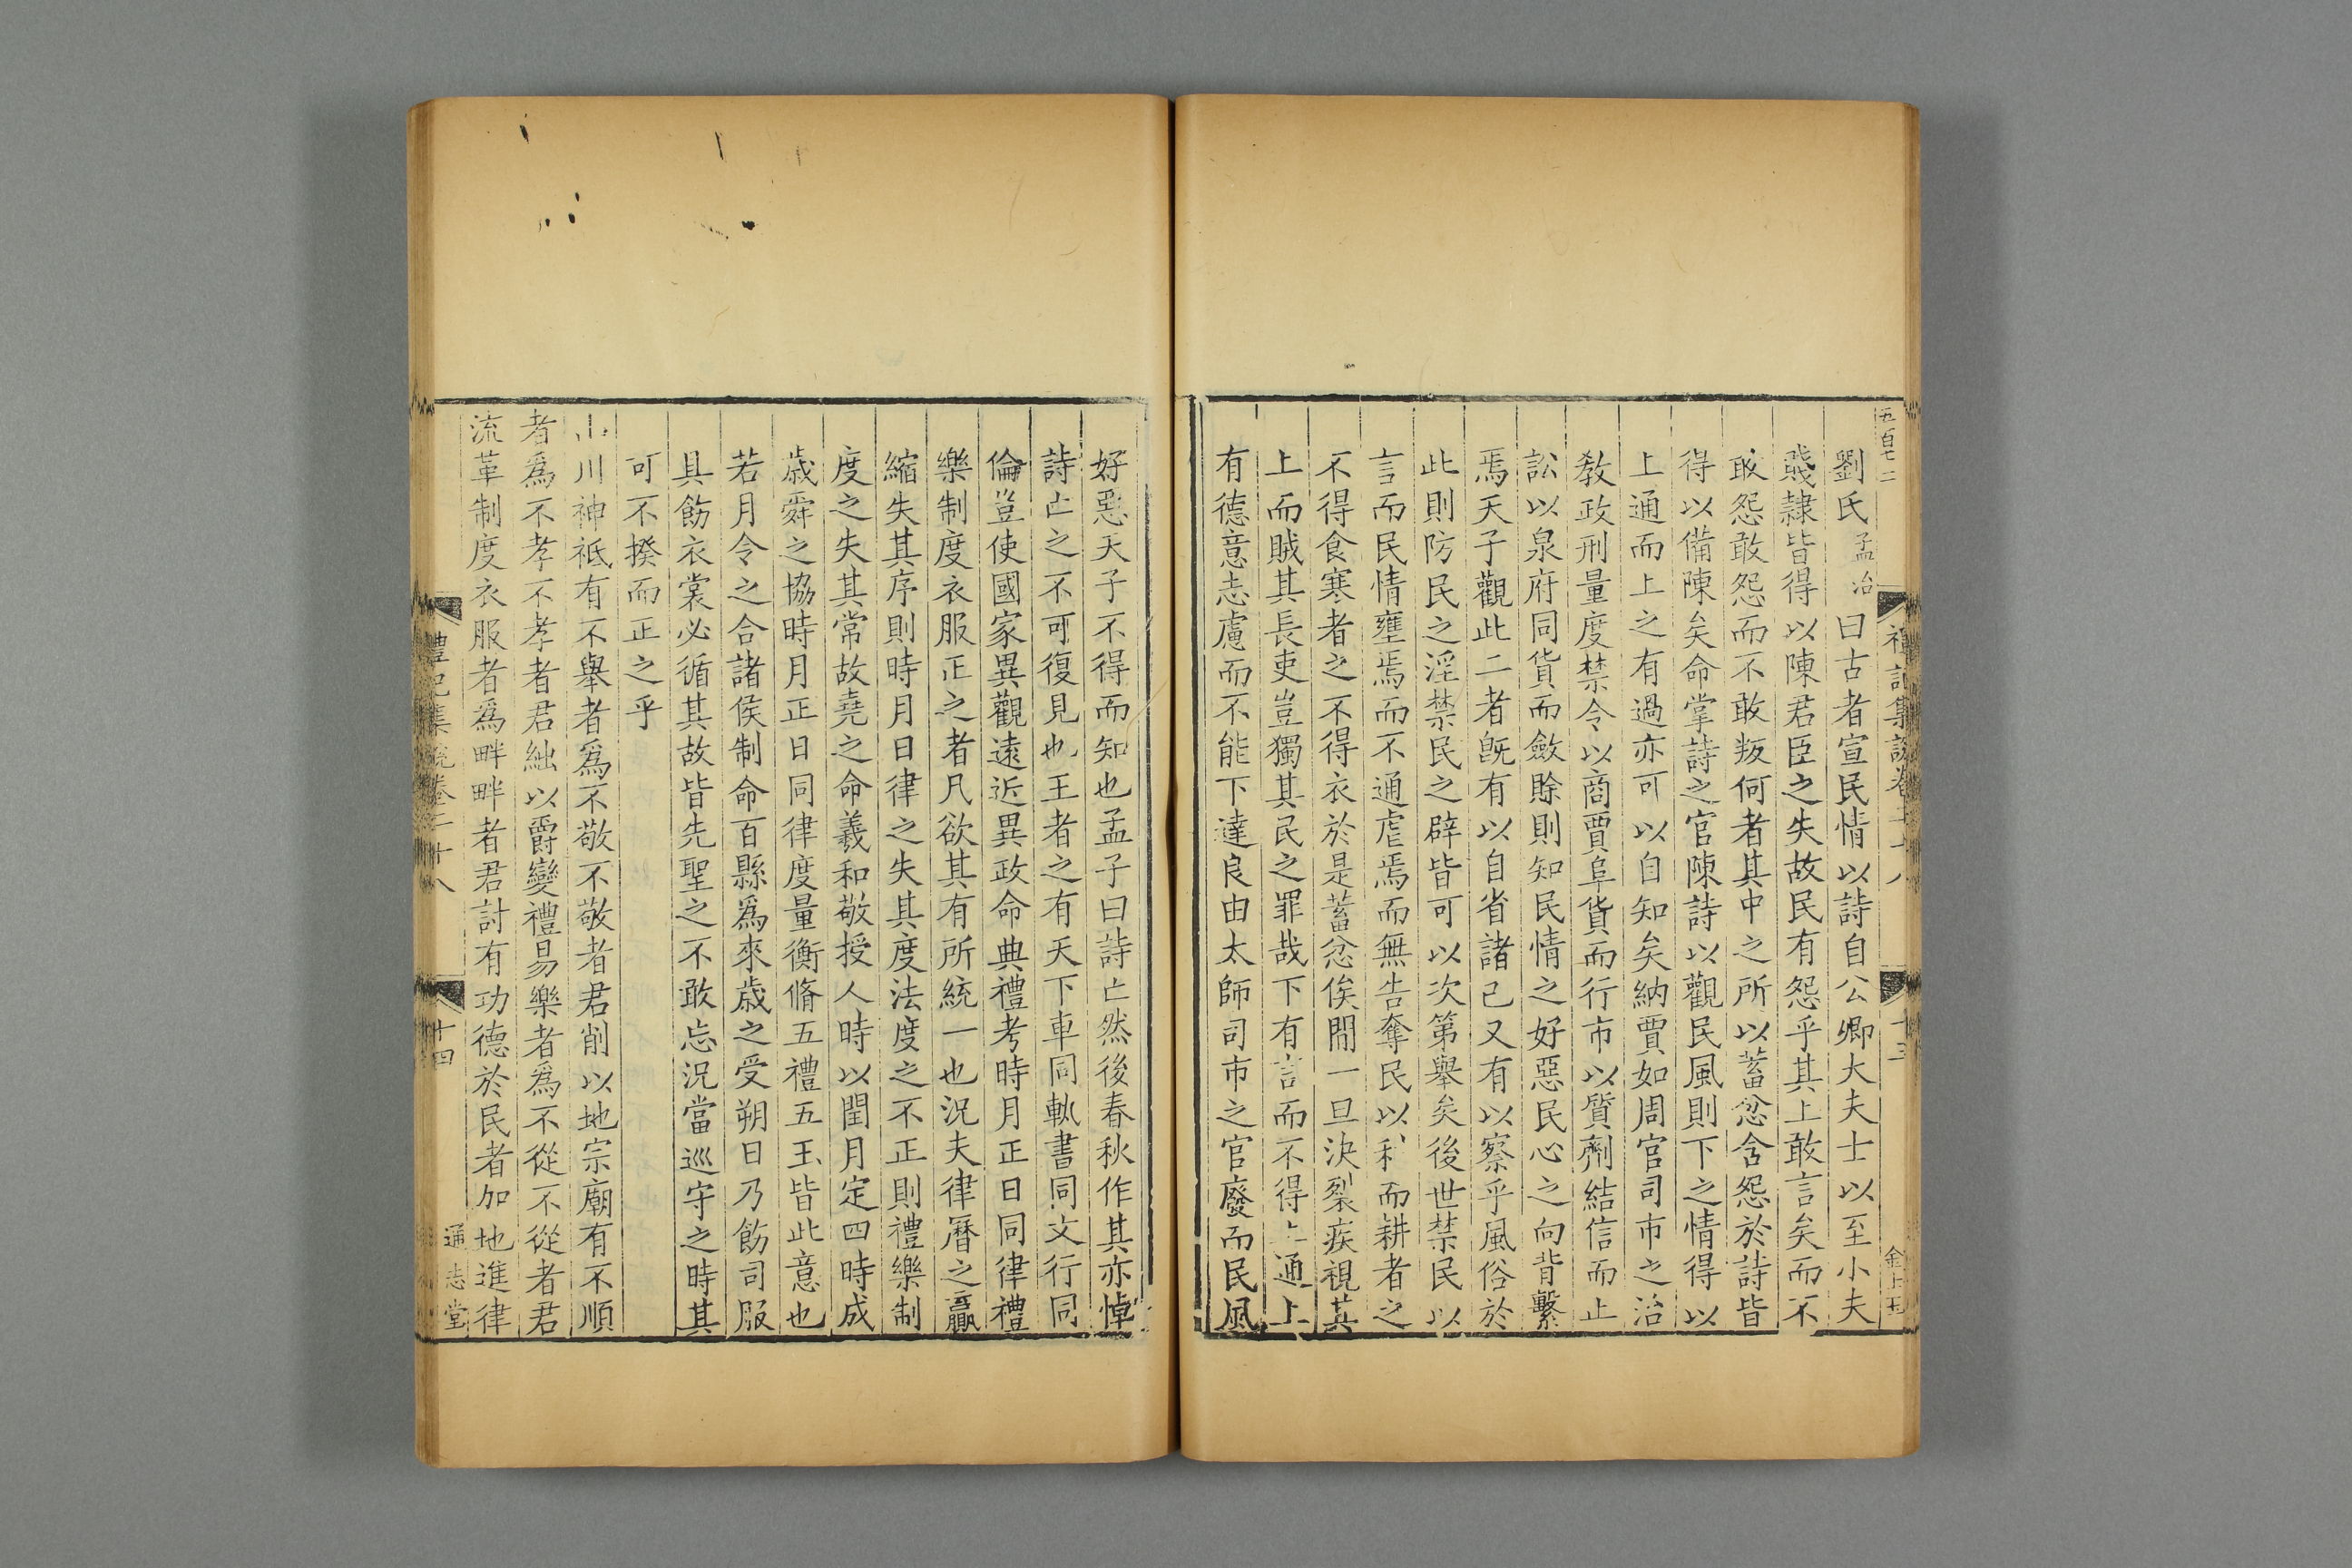 五百七二
劉氏孟冶曰古者宣民情以詩自公卿大夫士以至小夫
賤隸皆得以陳君臣之失故民有怨乎其上敢言矣而不
敢怨敢怨而不敢叛何者其中之所以蓄忿含怨於詩皆
得以備陳矣命掌詩之官陳詩以觀民風則下之情得以
上通而上之有過亦可以自知矣納賈如周官司市之治
敎政刑量度禁令以商賈阜貨而行市以質劑結信而止
訟以泉府同貨而斂賖則知民情之好惡民心之向背繫
焉天子觀此二者旣有以自省諸己又有以察乎風俗於
此則防民之淫禁民之辟皆可以次第舉矣後世禁民以
言而民情壅焉而不通虐焉而無告奪民以利而耕者之
不得食寒者之不得衣於是蓄忿俟閒一旦決裂疾視其
上而賊其長吏豈獨其民之罪哉下有言而不得上通上
有德意志慮而不能下達良由太師司市之官廢而民風
好惡天子不得而知也孟子曰詩亡然後春秋作其亦悼
詩亡之不可復見也王者之有天下車同軌書同文行同
倫豈使國家異觀遠近異政命典禮考時月正日同律禮
樂制度衣服正之者凡欲其有所統一也況夫律曆之贏
縮失其序則時月日律之失其度法度之不正則禮樂制
度之失其常故堯之命羲和敬授人時以閏月定四時成
歳舜之協時月正日同律度量衡脩五禮五玉皆此意也
若月令之合諸侯制命百縣爲來歳之受朔日乃飭司服
具飭衣裳必循其故皆先聖之不敢忘況當巡守之時其
可不揆而正之乎
山川神祇有不舉者爲不敬不敬者君削以地宗廟有不順
者爲不孝不孝者君絀以爵變禮易樂者爲不從不從者君
流革制度衣服者爲畔畔者君討有功德於民者加地進律
禮記集說卷二十八
十四
通志堂